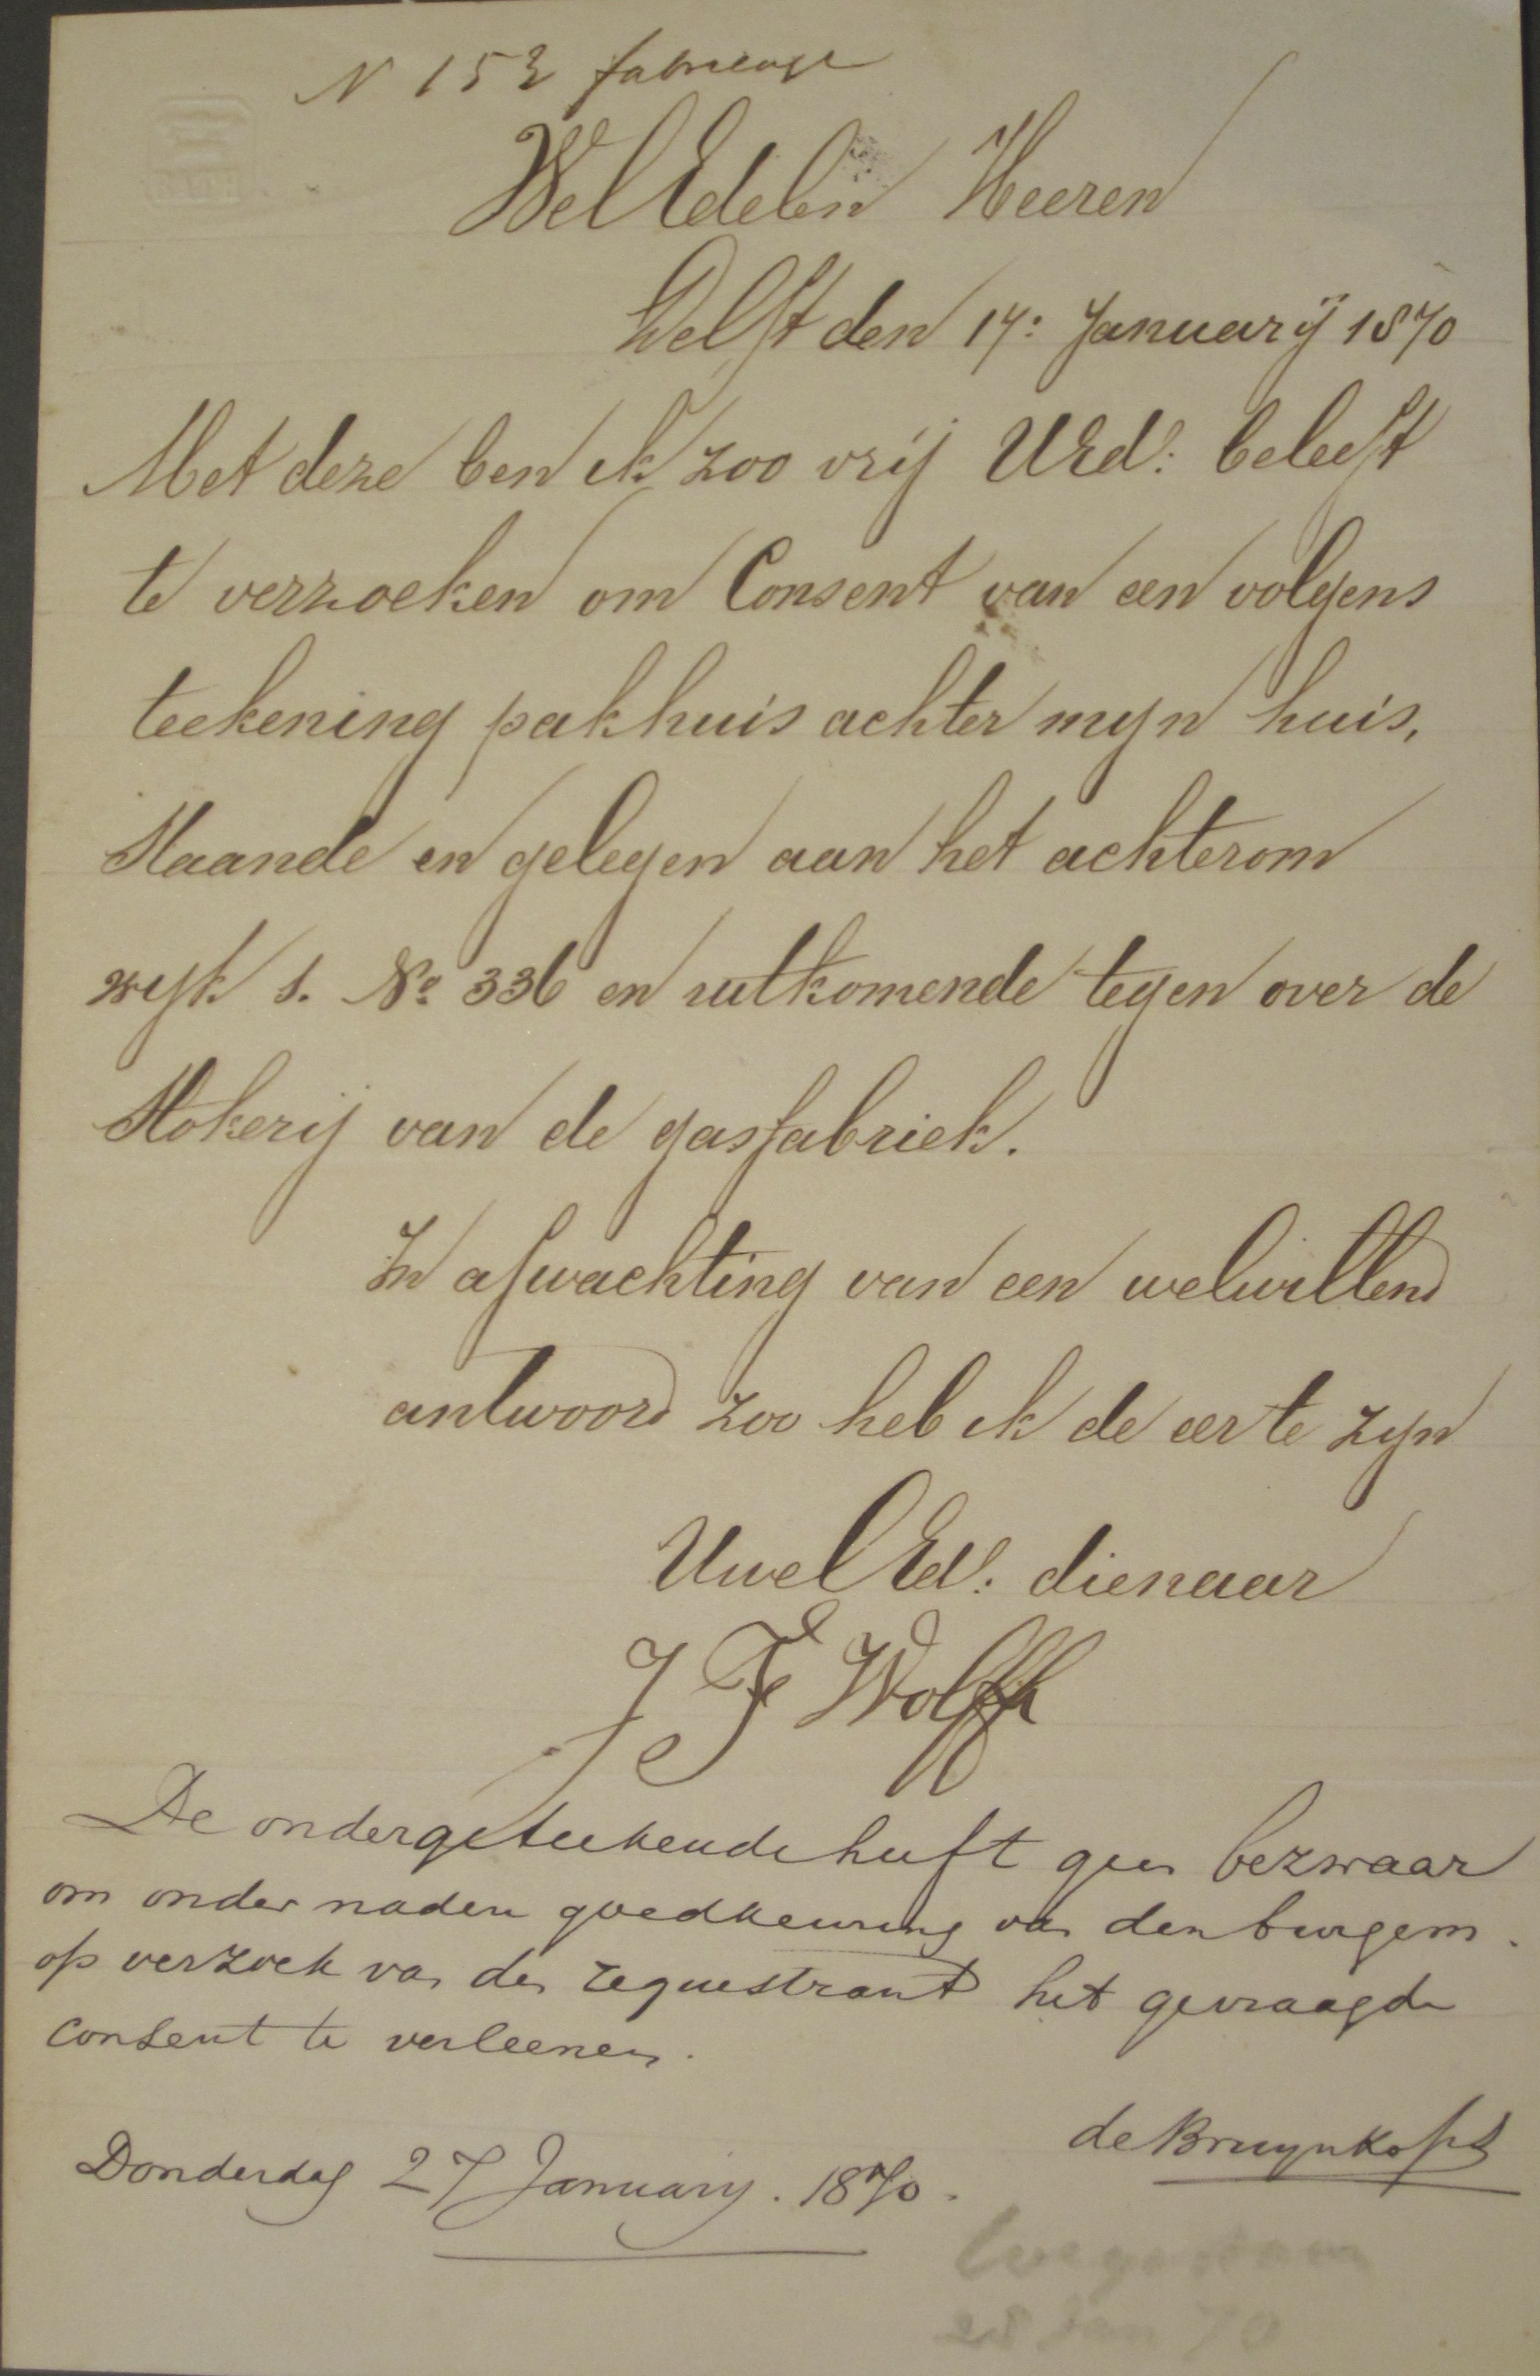 N 153 fabricage
WelEdelen Heeren
Delft den 17: Januarij 1870
Met deze ben ik zoo vrij UEd: beleeft
te verzoeken om Consent van een volgens
teekening pakhuis achter mijn huis,
Staande en gelegen aan het achterom
wijk 1. No 336 en uitkomende tegen over de
Stokerij van de gasfabriek.
In afwachting van een welwillend
antwoord zoo heb ik de eer te zijn
UwelEd: dienaar
J F Wolff
De ondergeteekende heeft geen bezwaar
om onder nadere goedkeuring van den burgem.
op verzoek van den requestrant het gevraagde
consent te verleenen.
de Bruynkops
Donderdag 27 January. 1870.